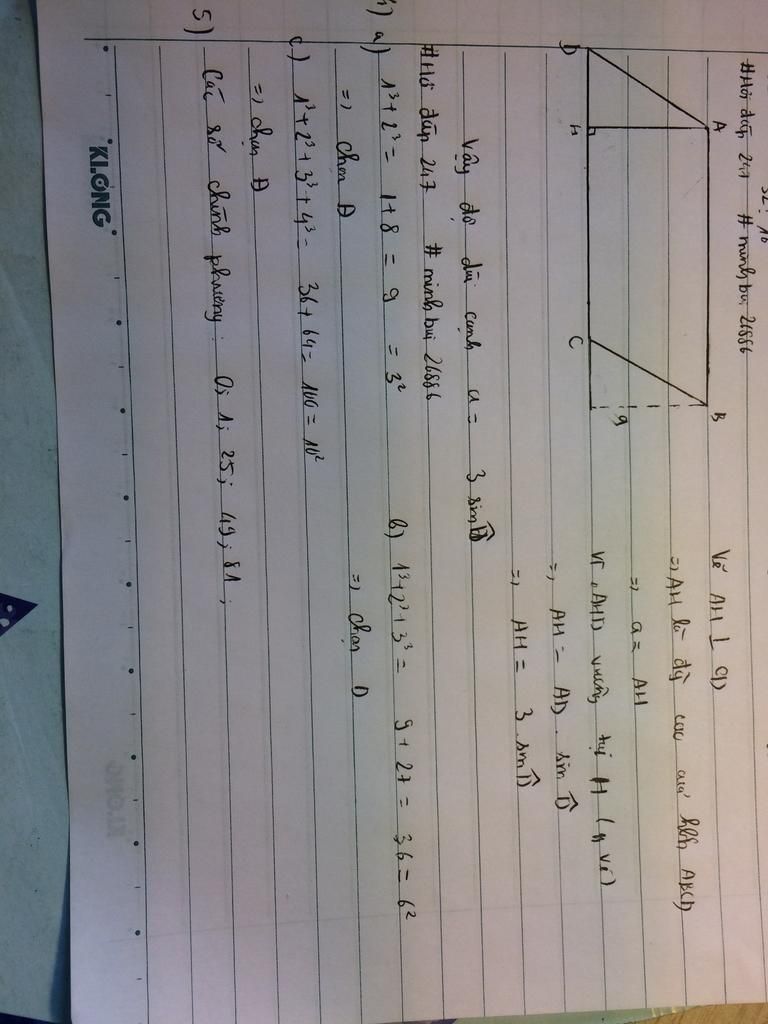 32: 16
#Hỏi đáp 247 #minhbui 26886
A
B
D
H
C
a
Vẽ AH ⊥ CD
=> AH là độ cao của hbh ABCD
=> a = AH
Vì AHD vuông tại H (g vẽ)
=> AH = AD . sin D̂
=> AH = 3 sin D̂
Vậy độ dài cạnh a = 3 sin D̂
#Hỏi đáp 247 #minhbui 26886
a) 1³ + 2³ = 1 + 8 = 9 = 3²
=> chọn Đ
b) 1³ + 2³ + 3³ = 9 + 27 = 36 = 6²
=> chọn Đ
c) 1³ + 2³ + 3³ + 4³ = 36 + 64 = 100 = 10²
=> chọn Đ
5) Các số chính phương: 0; 1; 25; 49; 81;
KLONG